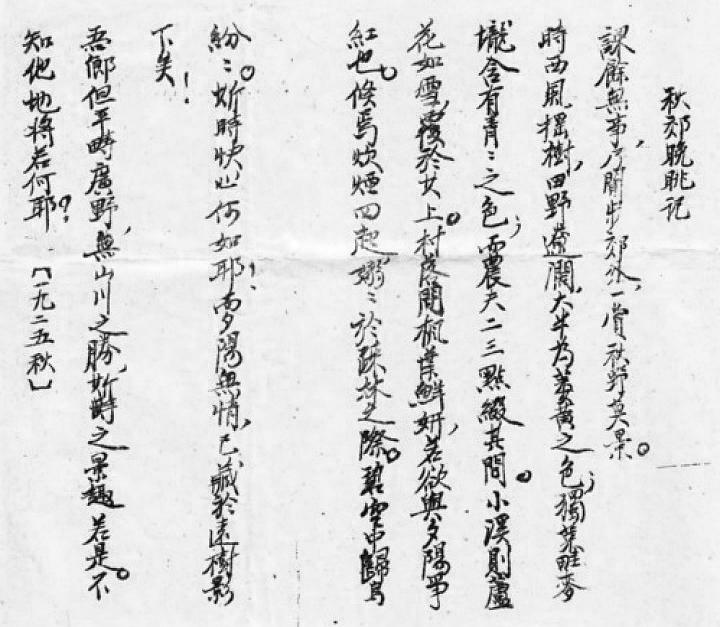 秋郊晚眺记
課餘無事，閒步郊外，一賞秋野美景。
時西風搖樹，田野遼濶，大半为萎黃之色；獨麥
壠含有青：之色；而農夫二三點綴其間。小溪則蘆
花如雪，覆於其上。村落間楓葉鮮妍，若欲與夕陽爭
紅也。倏焉炊煙四起，嫋：於疎林之際。碧空中歸鳥
紛：。斯時快心何如耶！而夕陽無情，已藏於遠樹影
下矣！
吾鄉但平疇廣野，無山川之勝，斯時之景趣若是。不
知他地将若何耶？〔一九二五秋〕